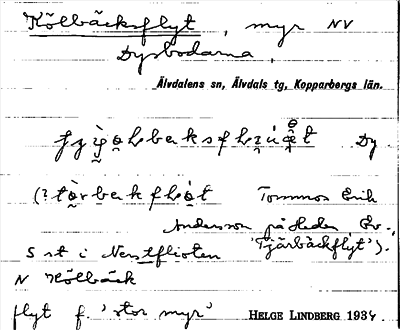 Kölbäcksflyt, myr NV
Dysbodarna,
Älvdalens sn, Älvdals tg, Kopparbergs län.
Dy
Tommos Erik
Andersson på Heden, Ev.,
'Tjärbäckflyt').
S st i Nerstflioten
N Kölbäck
flyt f. 'stor myr' HELGE LINDBERG 1934.